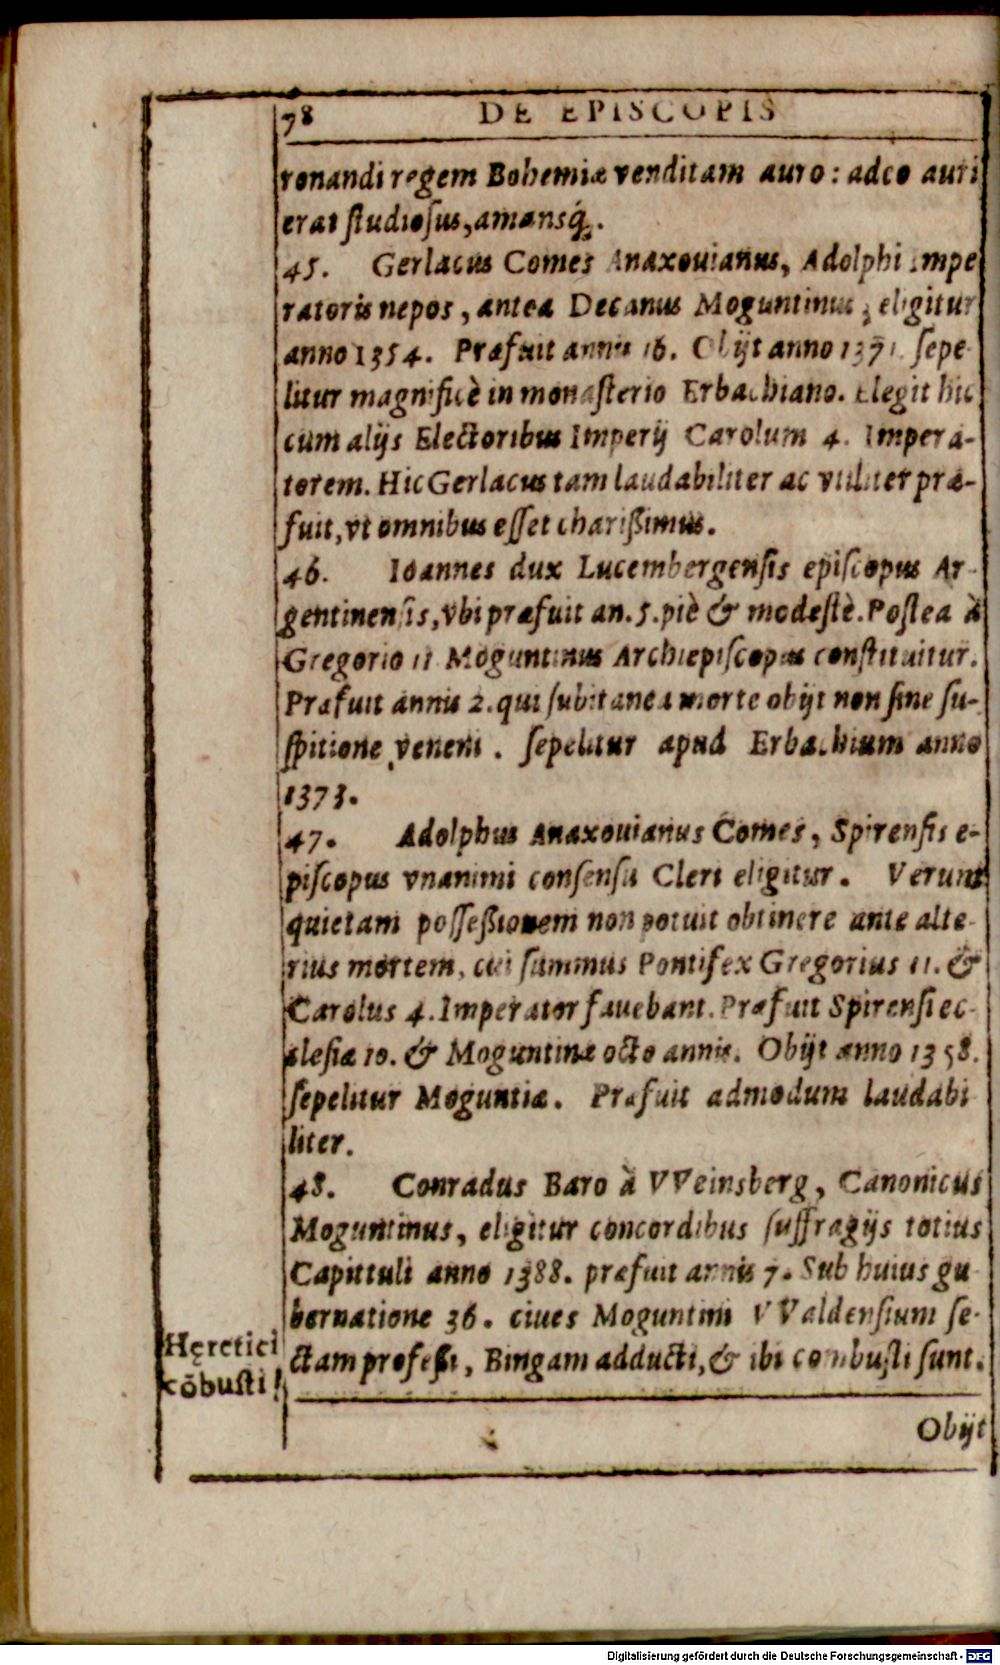 78 DE EPISCOPIS
ronandi regem Bohemiæ venditam auro: adeo auri
erat ſtudioſus, amansq́;.
45. Gerlacus Comes Anaxouianus, Adolphi Impe
ratoris nepos, antea Decanus Moguntinus, eligitur
anno 1354. Præfuit annis 16. Obijt anno 1371. ſepe-
litur magnificè in monaſterio Erbachiano. Elegit hic
cum alijs Electoribus Imperij Carolum 4. Impera-
torem. Hic Gerlacus tam laudabiliter ac vtiliter præ-
fuit, vt omnibus eſſet charißimus.
46. Ioannes dux Lucembergenſis epiſcopus Ar-
gentinenſis, vbi præfuit an. 5. piè & modeſtè. Poſtea à
Gregorio 11 Moguntinus Archiepiſcopus conſtituitur.
Præfuit annis 2. qui ſubitanea morte obijt non ſine ſu-
ſpitione veneni. ſepelitur apud Erbachium anno
1373.
47. Adolphus Anaxouianus Comes, Spirenſis e-
piſcopus vnanimi conſenſu Cleri eligitur. Verunt
quietam poſſeßionem non potuit obtinere ante alte-
rius mortem, cui ſummus Pontifex Gregorius 11. &
Carolus 4. Imperator fauebant. Præfuit Spirenſi ec-
cleſiæ 10. & Moguntinæ octo annis. Obijt anno 1358.
ſepelitur Moguntiæ. Præfuit admodum laudabi
liter.
48. Conradus Baro à VVeinsberg, Canonicus
Moguntinus, eligitur concordibus ſuffragijs totius
Capittuli anno 1388. præfuit annis 7. Sub huius gu-
bernatione 36. ciues Moguntini VValdenſium ſe-
ctam profeßi, Bingam adducti, & ibi combuſti ſunt.
Hęretici
cōbuſti
Obijt
Digitalisierung gefördert durch die Deutsche Forschungsgemeinschaft - DFG